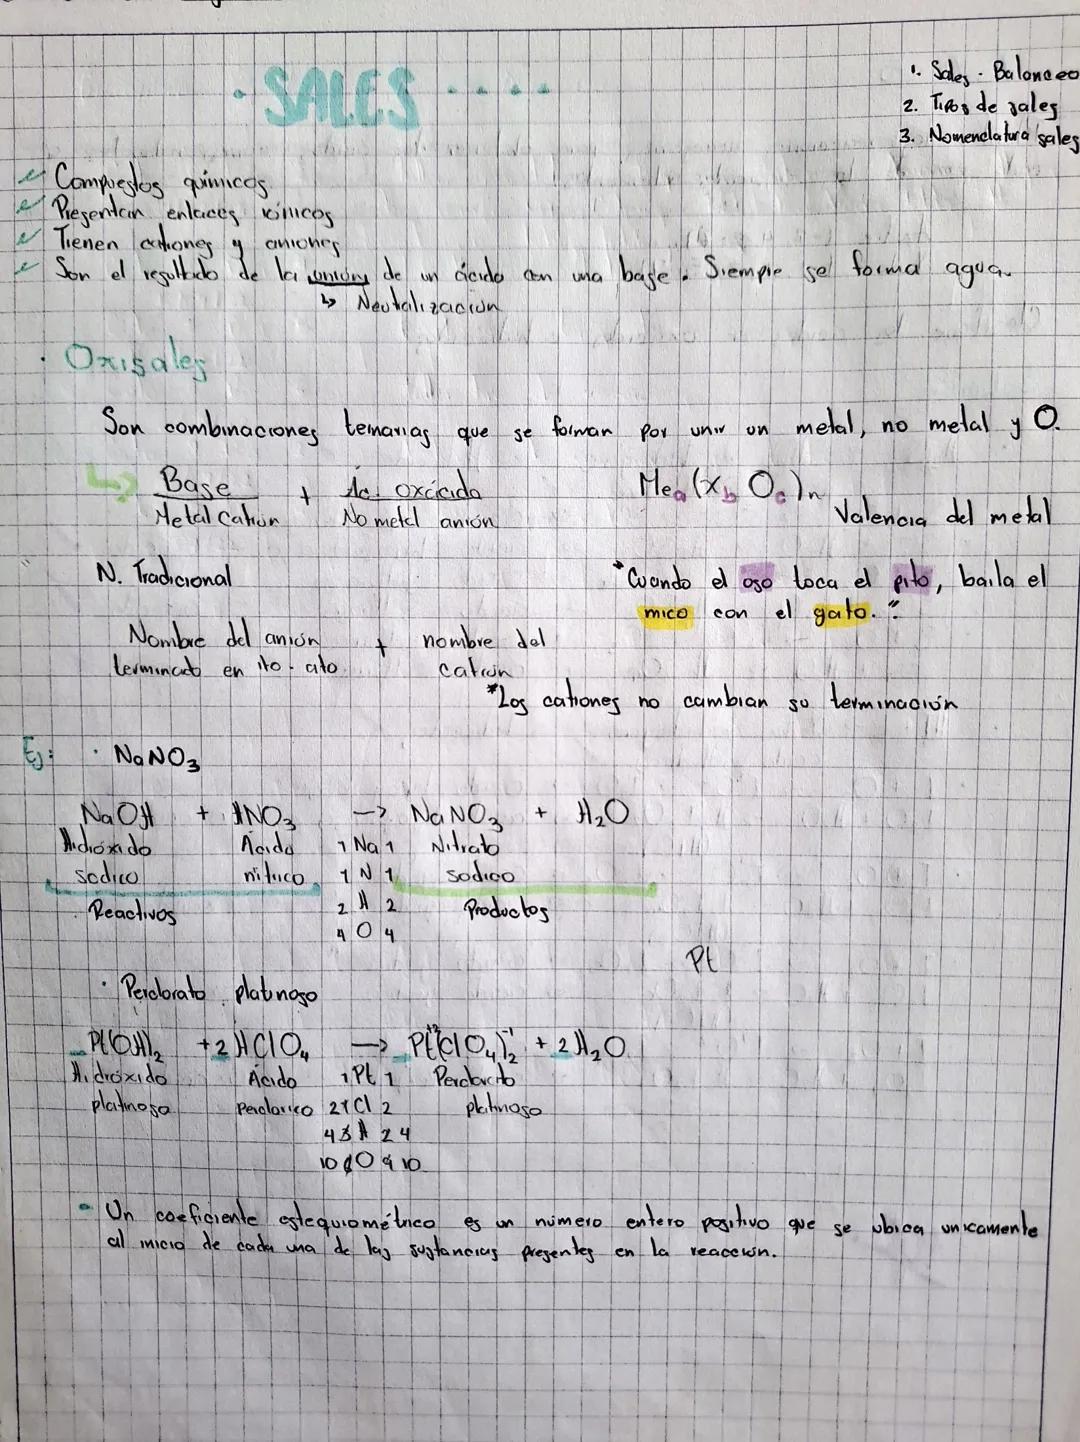 · SALES ····
1. Sales - Balanceo
2. Tipos de sales
3. Nomenclatura sales
Compuestos químicos
Presentan enlaces iónicos
Tienen cationes y aniones
Son el resultado de la unión de un ácido con una base. Siempre se forma agua.
↳ Neutralización
· Oxisales
Son combinaciones ternarias que se forman por unir un metal, no metal y O.
↳ Base + Ac. oxácido
Metal Catión No metal anión
Meₐ(X_b O_c)n
Valencia del metal
N. Tradicional
"Cuando el oso toca el pito, baila el
mico con el gato."
Nombre del anión + nombre del
terminado en ito - ato catión
*Los cationes no cambian su terminación
Ej: · NaNO₃
NaOH + HNO₃ → NaNO₃ + H₂O
Hidróxido Ácido 1 Na 1 Nitrato
sodico nítrico 1 N 1 sodico
Reactivos 2 H 2 Productos
4 O 4
Pt
· Perclorato platinoso
Pt(OH)₂ + 2 HClO₄ → Pt⁺²(ClO₄)₂⁻¹ + 2 H₂O
Hidróxido Ácido 1 Pt 1 Perclorato
platinoso Perclorico 2 1 Cl 2 platinoso
4 3 H 2 4
10 6 O 9 10
· Un coeficiente estequiométrico es un número entero positivo que se ubica unicamente
al inicio de cada una de las sustancias presentes en la reacción.